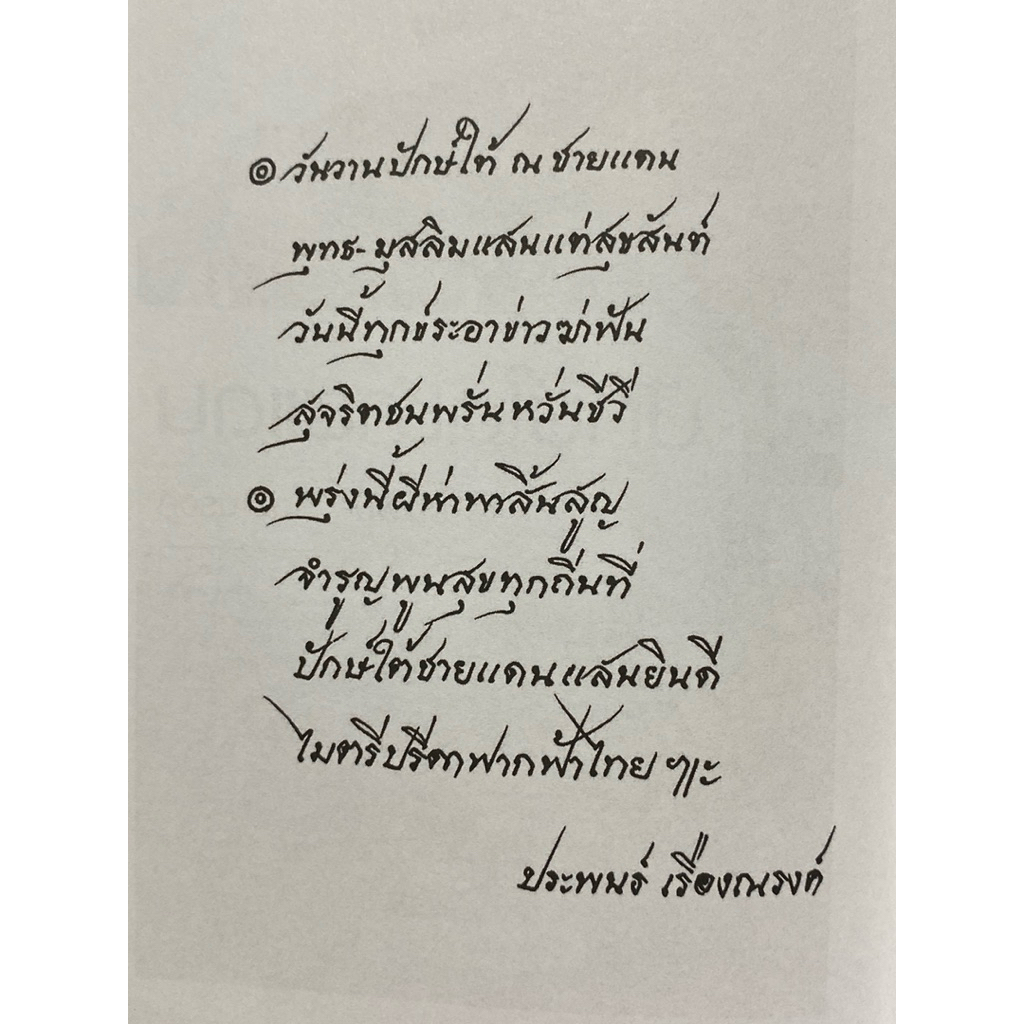 ๏ วันวานปักษ์ใต้ ณ ชายแดน
พุทธ-มุสลิมแสนแท้สุขสันต์
วันนี้ทุกข์ระอาข่าวฆ่าฟัน
สุจริตชนพรั่นหวั่นชีวี
๏ พรุ่งนี้ผีห่าพาสิ้นสูญ
จำรูญพูนสุขทุกถิ่นที่
ปักษ์ใต้ชายแดนแสนยินดี
ไมตรีปรีดาฟากฟ้าไทย ฯะ
ประพนธ์ เรืองณรงค์